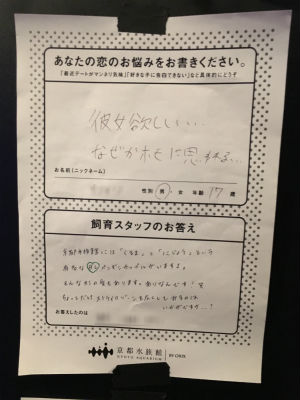 あなたの恋のお悩みをお書きください。
「最近デートがマンネリ気味」「好きな子に告白できない」など具体的にどうぞ
彼女欲しい・・・
なぜかホモに思われる・・・
お名前(ニックネーム)
性別 男・女 年齢 17 歳
飼育スタッフのお答え
京都水族館には「くるま」と「にじょう」という
有名な ペンギンカップルがいますよ。
そんな形の愛もあります。ありなんです!笑
お答えしたのは
京都水族館
KYOTO AQUARIUM
BY ORIX